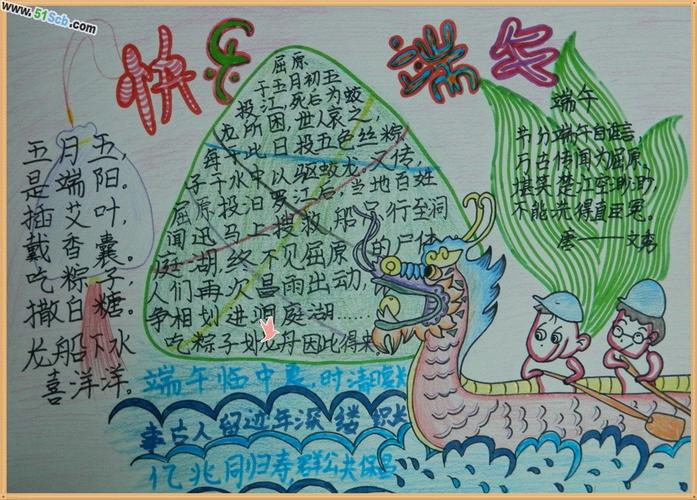 www.51Scb.com
快乐端午
五月五，
是端阳。
插艾叶，
戴香囊。
吃粽子，
撒白糖。
龙船下水
喜洋洋。
屈原
于五月初五
投江，死后为蛟
龙所困，世人哀之
每于此日投五色丝粽
子于水中以驱蛟龙，又传，
屈原投汨罗江后，当地百姓
闻迅马上搜救船只，行至洞
庭湖，终不见屈原的尸体，
人们再次昌雨出动，
争相划进洞庭湖……
吃粽子划龙舟因此得来
端午
节分端午自谁言，
万古传闻为屈原。
堪笑楚江空渺渺，
不能洗得直臣冤。
唐——文秀
端午临中夏，时清日复长
事古人留迹年深缕积长
亿兆同归寿群公共保昌